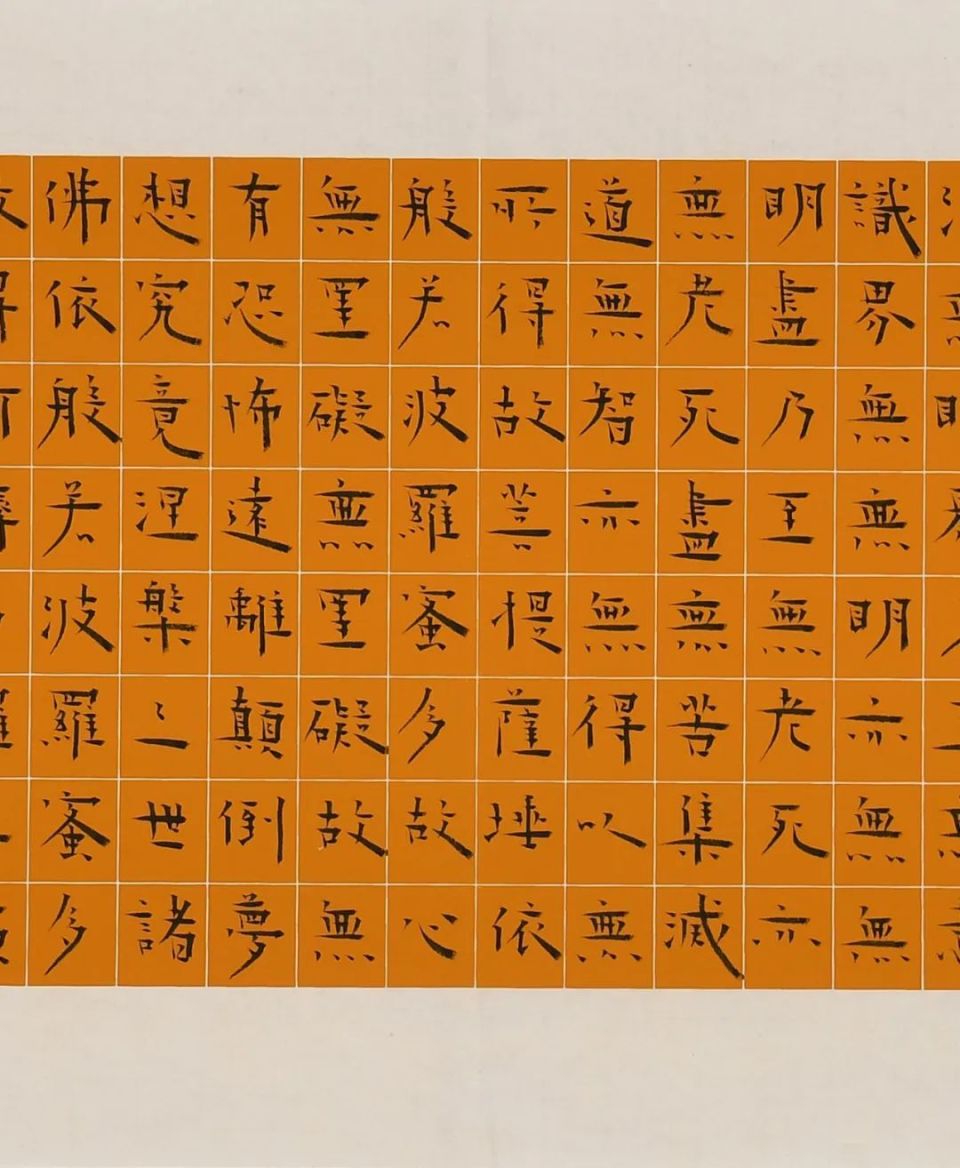 識界無無明亦無無
明盡乃至無老死亦
無老死盡無苦集滅
道無智亦無得以無
所得故菩提薩埵依
般若波羅蜜多故心
無罣礙無罣礙故無
有恐怖遠離顛倒夢
想究竟涅槃三世諸
佛依般若波羅蜜多